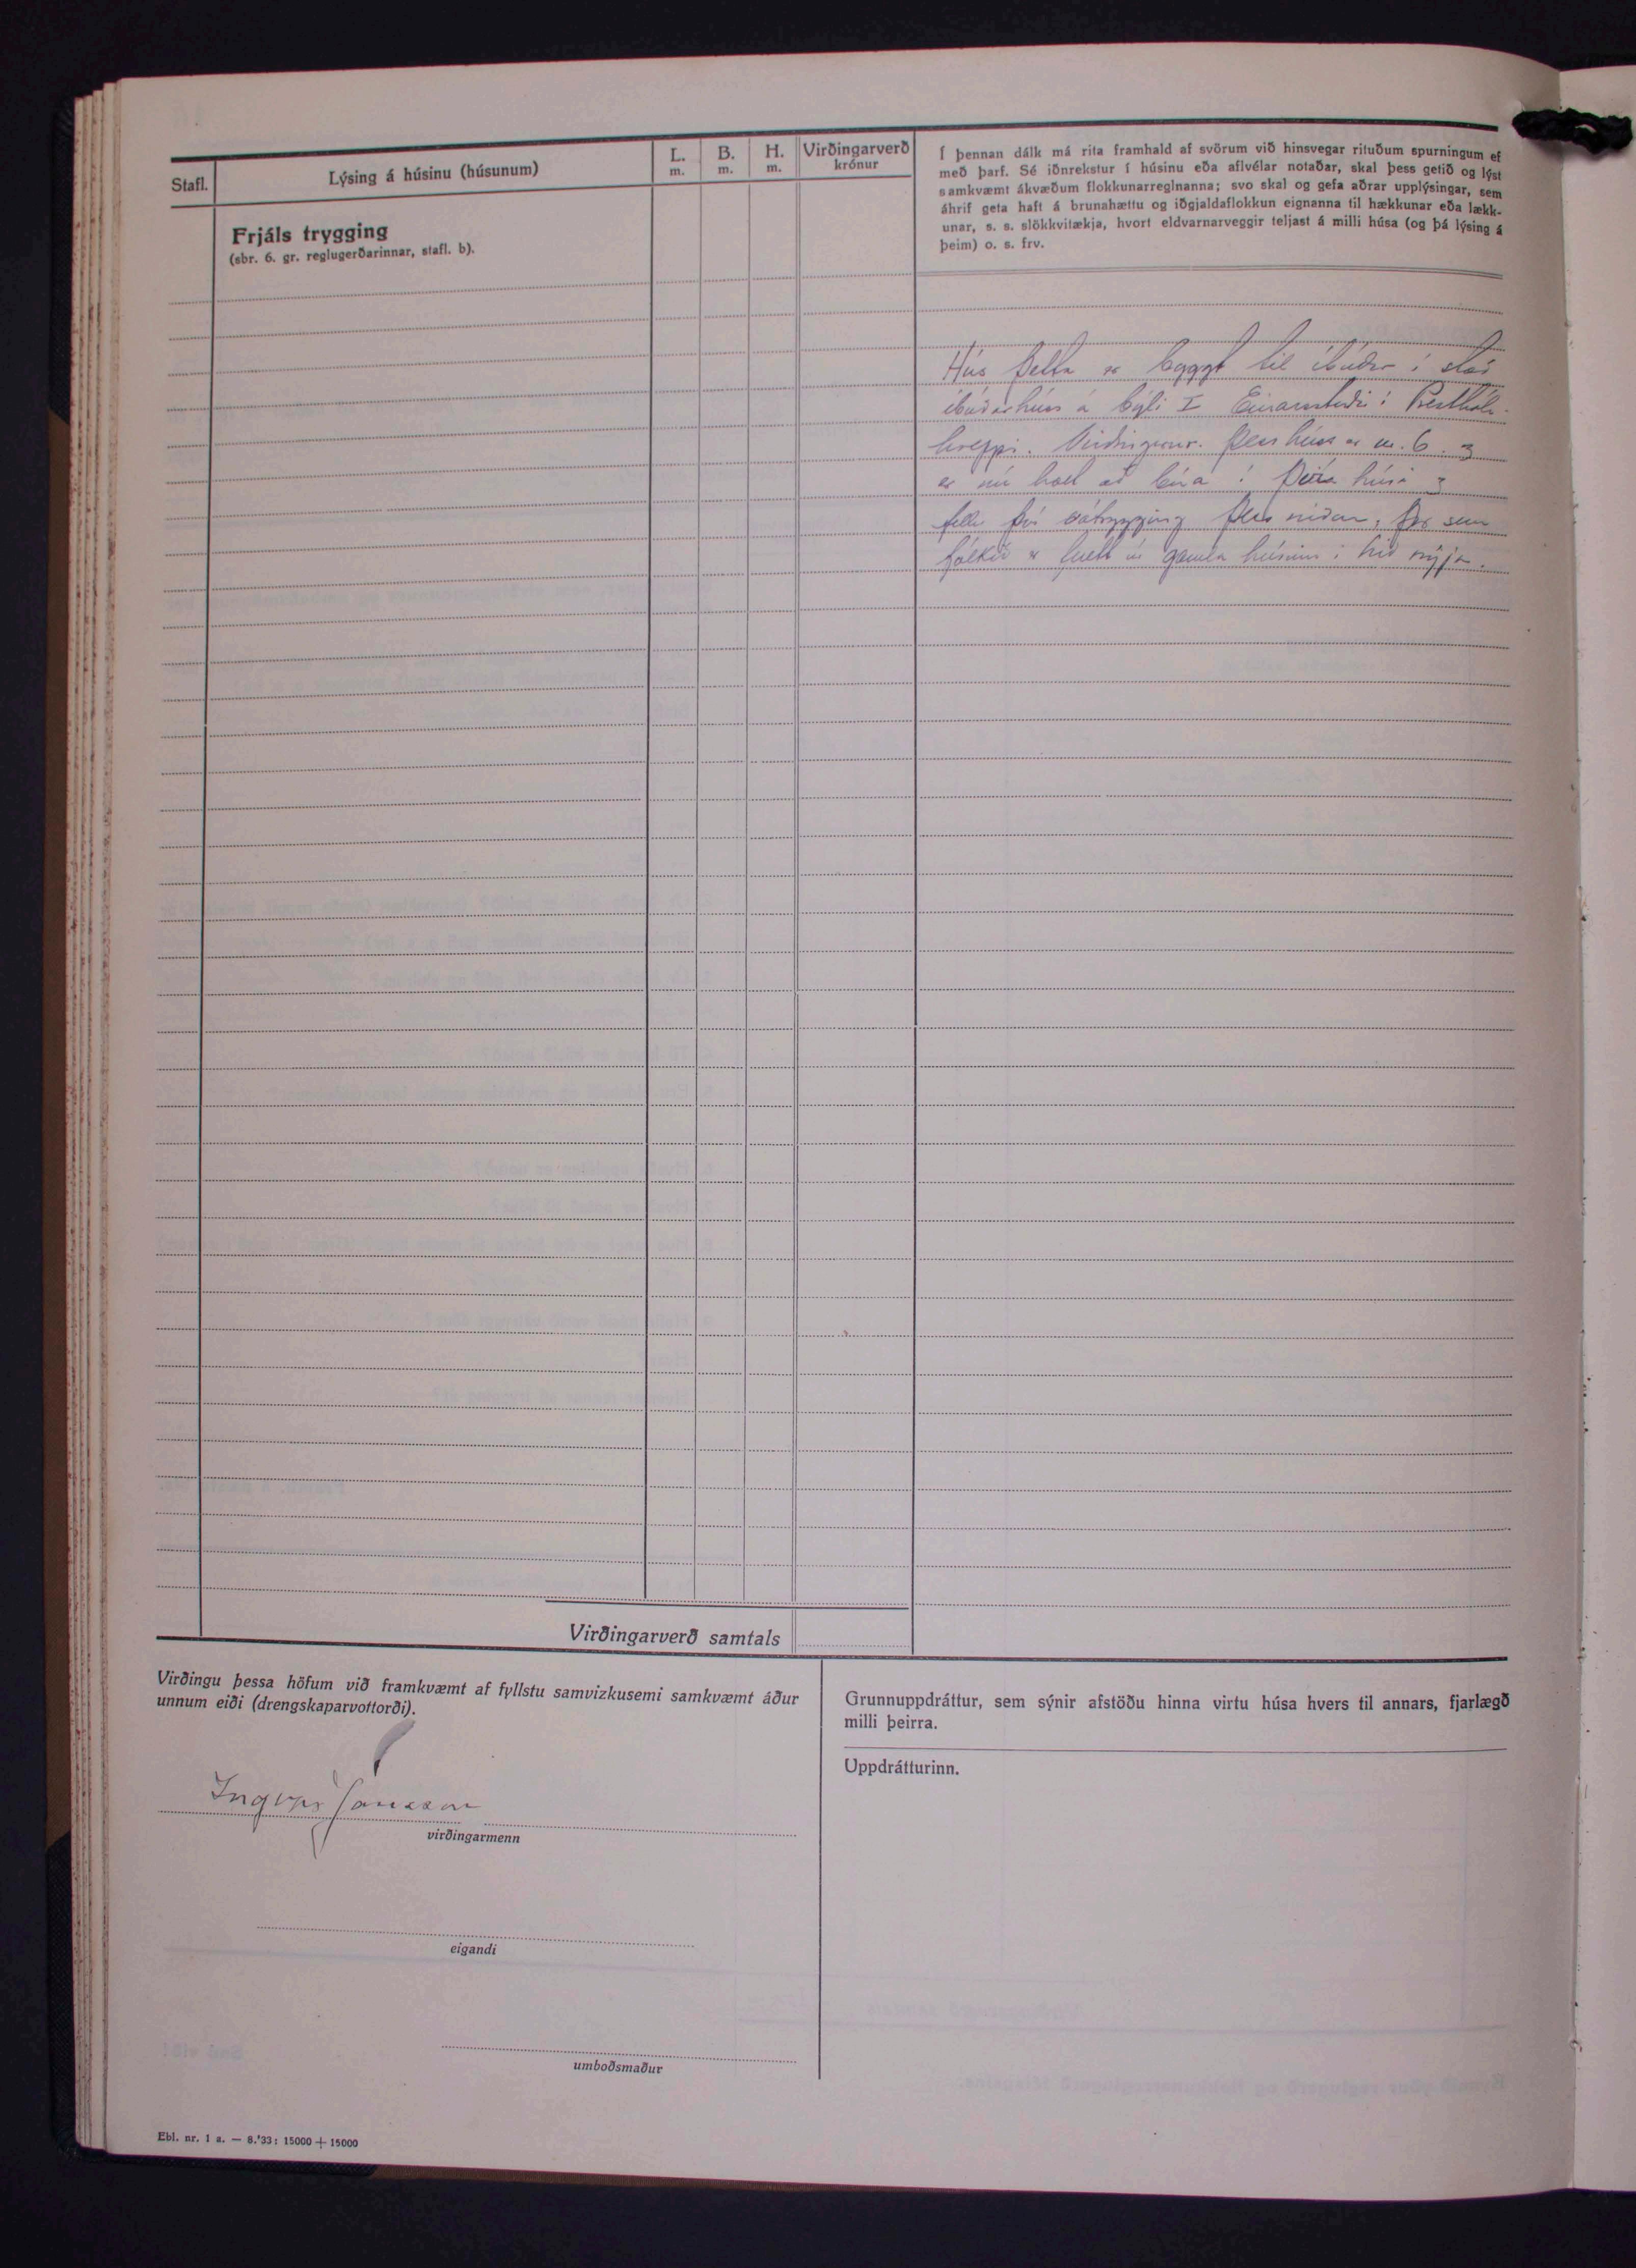 Stafl.
Lýsing á húsinu (húsunum)
L.
m.
B.
m.
H.
m.
Virðingarverð
krónur
Frjáls trygging
(sbr. 6. gr. reglugerðarinnar, stafl. b).
Í þennan dálk má rita framhald af svörum við hinsvegar rituðum spurningum ef
með þarf. Sé iðnrekstur í húsinu eða aflvélar notaðar, skal þess getið og lýst
samkvæmt ákvæðum flokkunarreglnanna; svo skal og gefa aðrar upplýsingar, sem
áhrif geta haft á brunahættu og iðgjaldaflokkun eignanna til hækkunar eða lækk-
unar, s. s. slökkvitækja, hvort eldvarnarveggir teljast á milli húsa (og þá lýsing á
þeim) o. s. frv.
Hús þetta er byggt til íbúðar í stað
íbúðarhúss á býli I Einarsstaðir í Presthóla-
hreppi. Virðingarnr. þess húss er nr. 6. og
er nú hætt að búa í því húsi og
fellur því vátrygging þess niður, þar sem
fólkið er flutt úr gamla húsinu í hið nýja.
Virðingarverð samtals
Virðingu þessa höfum við framkvæmt af fyllstu samvizkusemi samkvæmt áður
unnum eiði (drengskaparvottorði).
Ingvar Jónsson
virðingarmenn
eigandi
umboðsmaður
Grunnuppdráttur, sem sýnir afstöðu hinna virtu húsa hvers til annars, fjarlægð
milli þeirra.
Uppdrátturinn.
Ebl. nr. 1 a. — 8.'33: 15000 + 15000